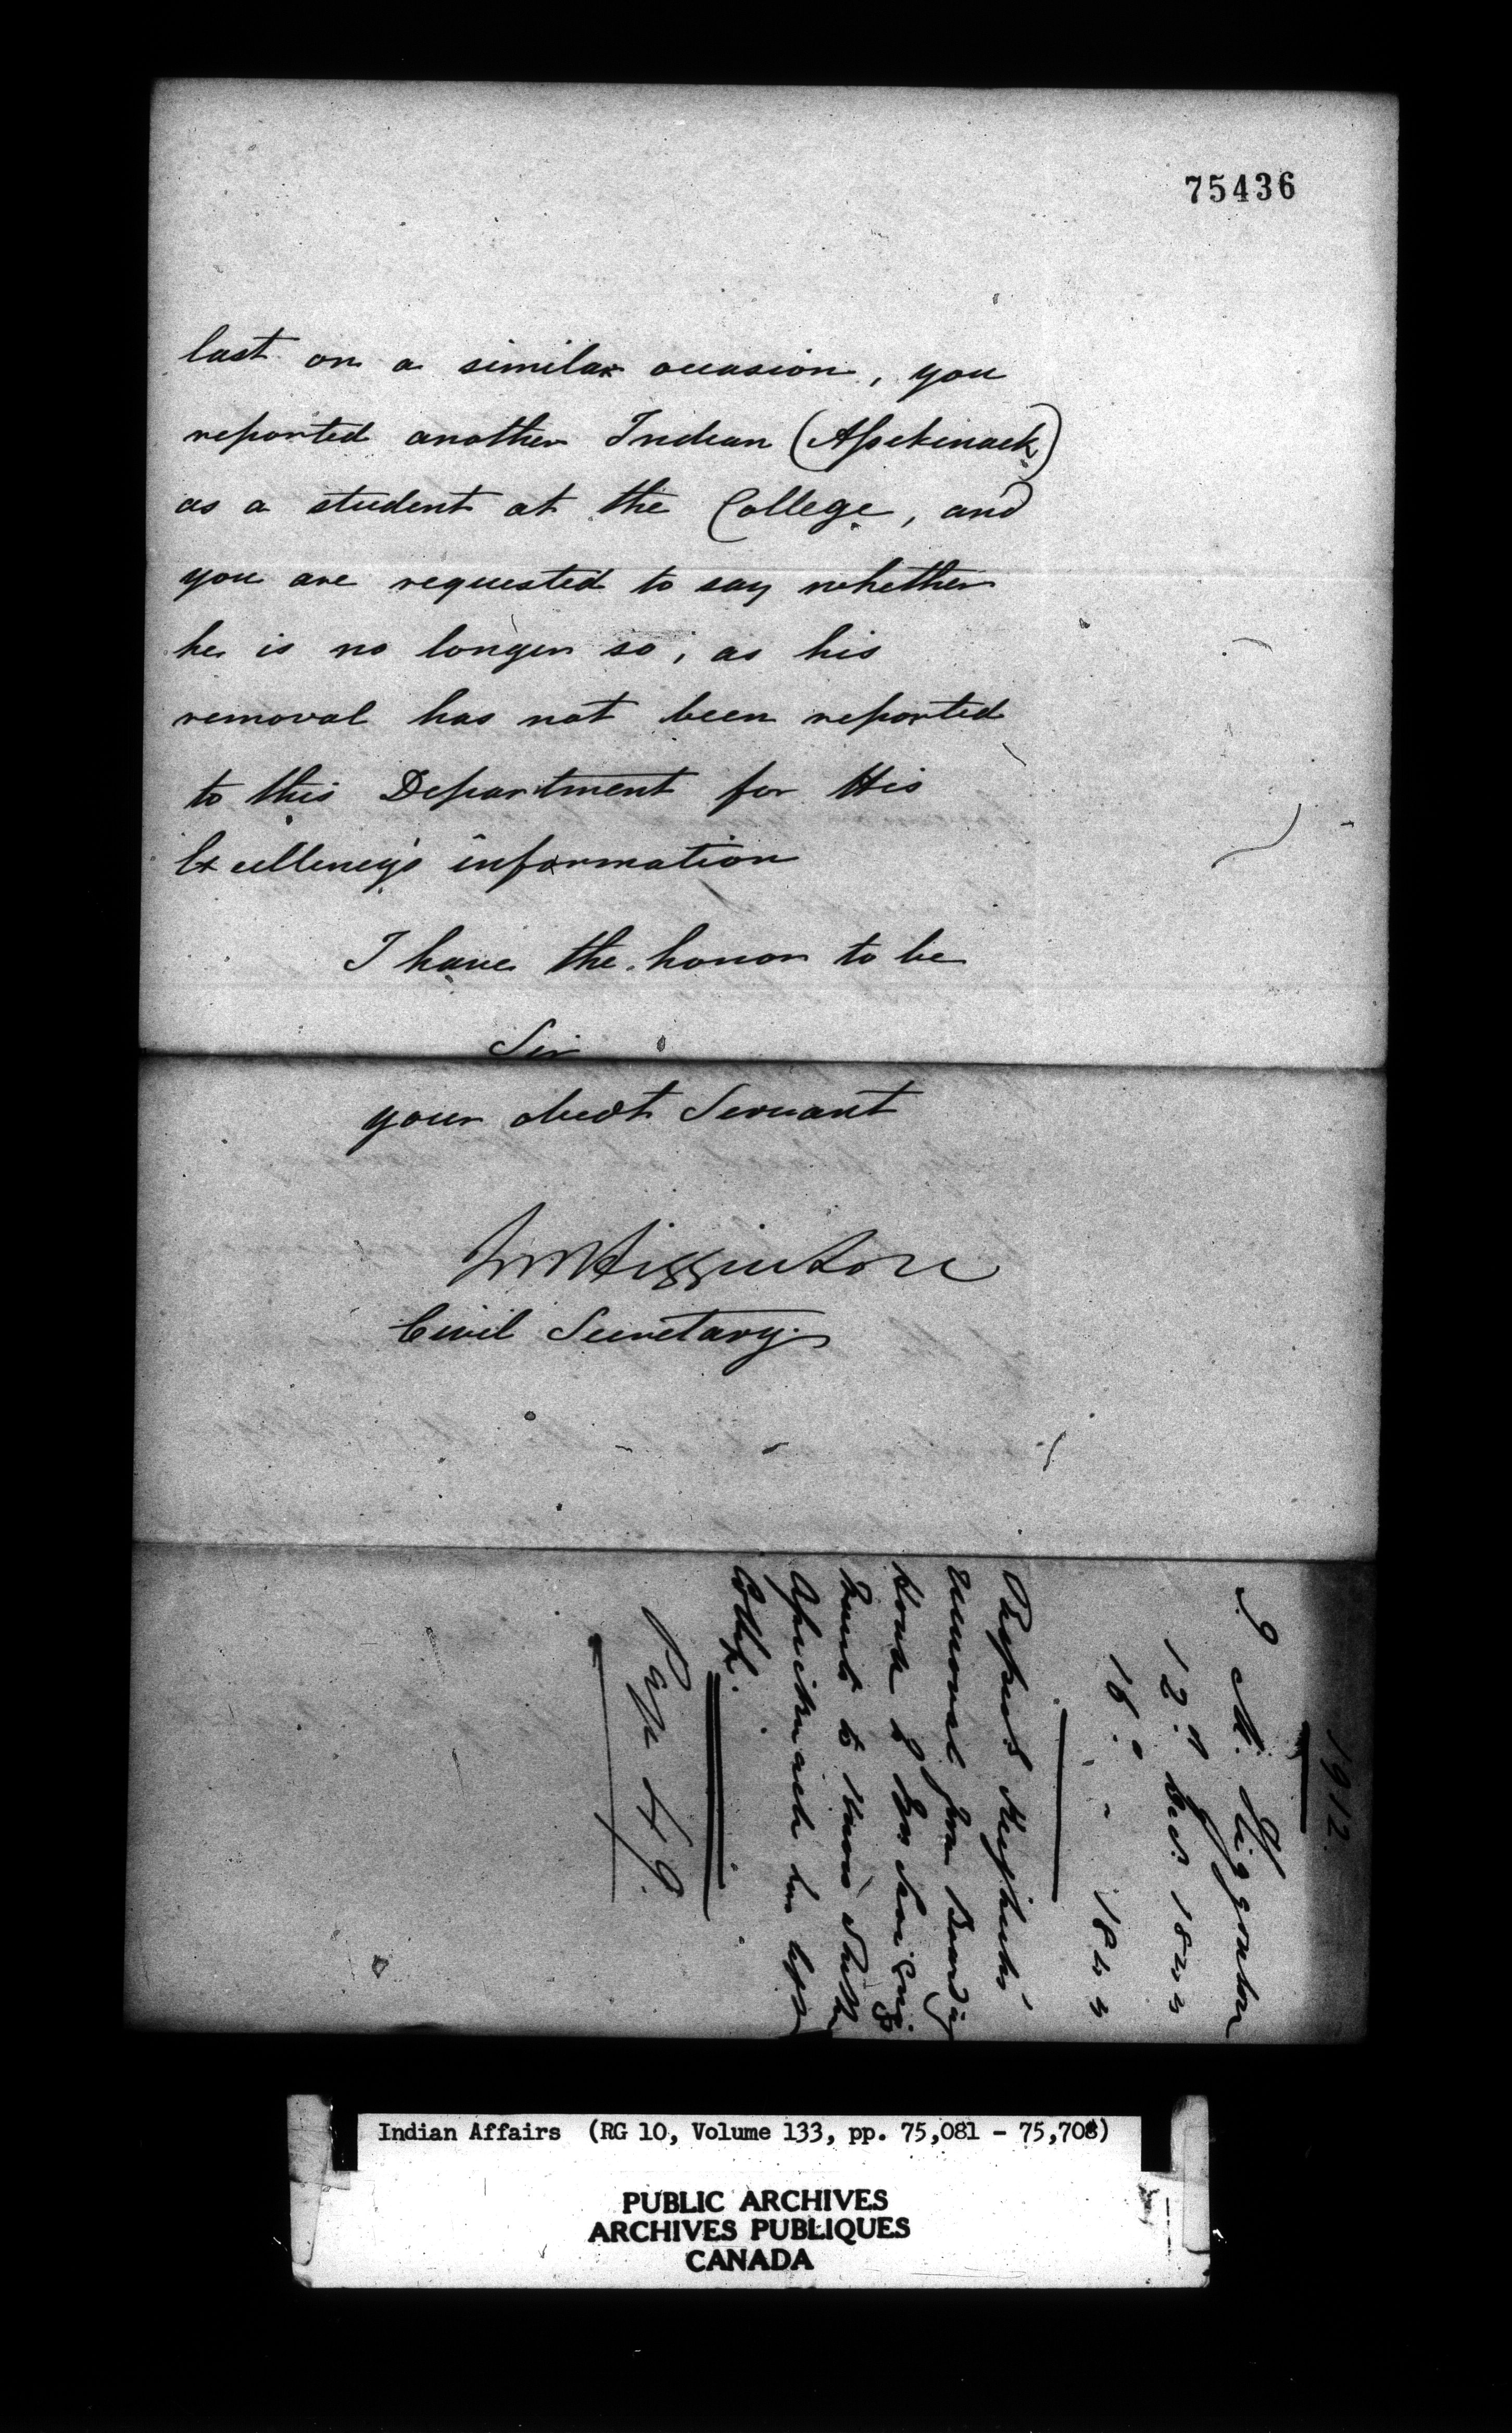 75436
last on a similar occasion, you
reported another Indian (Assekinack)
as a student at the College, and
you are requested to say whether
he is no longer so, as his
removal has not been reported
to this Department for His
Excellency's information
I have the honor to be
Sir
your obedt Servant
JM Higginson
Civil Secretary
1912.
J. M. Higginson
12th Decr. 1844
16 " " 1844
removal from Boarding
House
wants to know whether
Assickinack has left
Colle.
Page 49.
Indian Affairs (RG 10, Volume 133, pp. 75,081 - 75,708)
PUBLIC ARCHIVES
ARCHIVES PUBLIQUES
CANADA